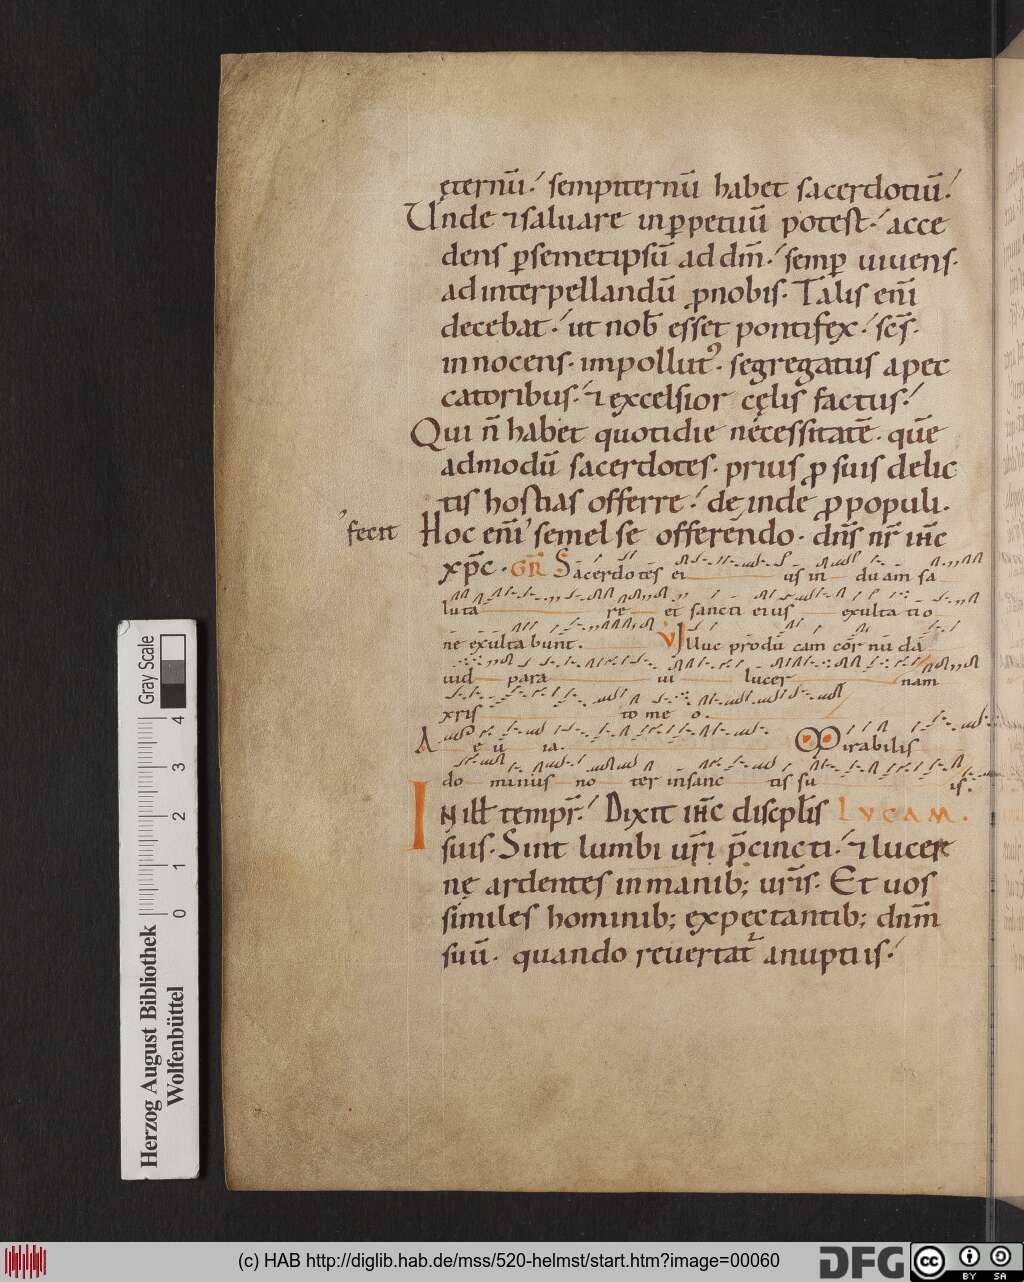 ęternū. sempiternū habet sacerdotiū.
Unde ⁊ saluare in ꝑpetuū potest. acce
dens ꝑ semetipsū ad dm̄. semꝑ uiuens.
ad interpellandū ꝓ nobis. Talis eni̅
decebat. ut nob̅ esset pontifex. sc̅s.
innocens. impollutꝰ. segregatus a pec
catoribus. ⁊ excelsior cęlis factus.
Qui n̅ habet quotidie necessitatē. quē
admodū sacerdotes. prius ꝓ suis delic
tis hostias offerre. deinde ꝓ populi.
fecit Hoc eni̅ semel se offerendo. dn̅s nr̅ ih̅c
xp̅c. GR̅ Sacerdotes ei us in du am sa
luta re et sancti eius exulta tio
ne exulta bunt. V Illuc produ cam cor nu da
uid para ui lucer nam
xpis to me o.
A e u ia. Mirabilis
do minus no ter in sanc tis su is.
IN ill̅ tempr̅. Dixit ih̅c discpl̅is LUCAM.
suis. Sint lumbi ur̅i p̅cincti. ⁊ lucer
nę ardentes in manib; ur̅is. Et uos
similes hominib; expectantib; dnm̅
suū. quando reuertat᷑ a nuptiis.
Gray Scale
4 3 2 1 0
Herzog August Bibliothek
Wolfenbüttel
(c) HAB http://diglib.hab.de/mss/520-helmst/start.htm?image=00060
DFG
cc BY SA